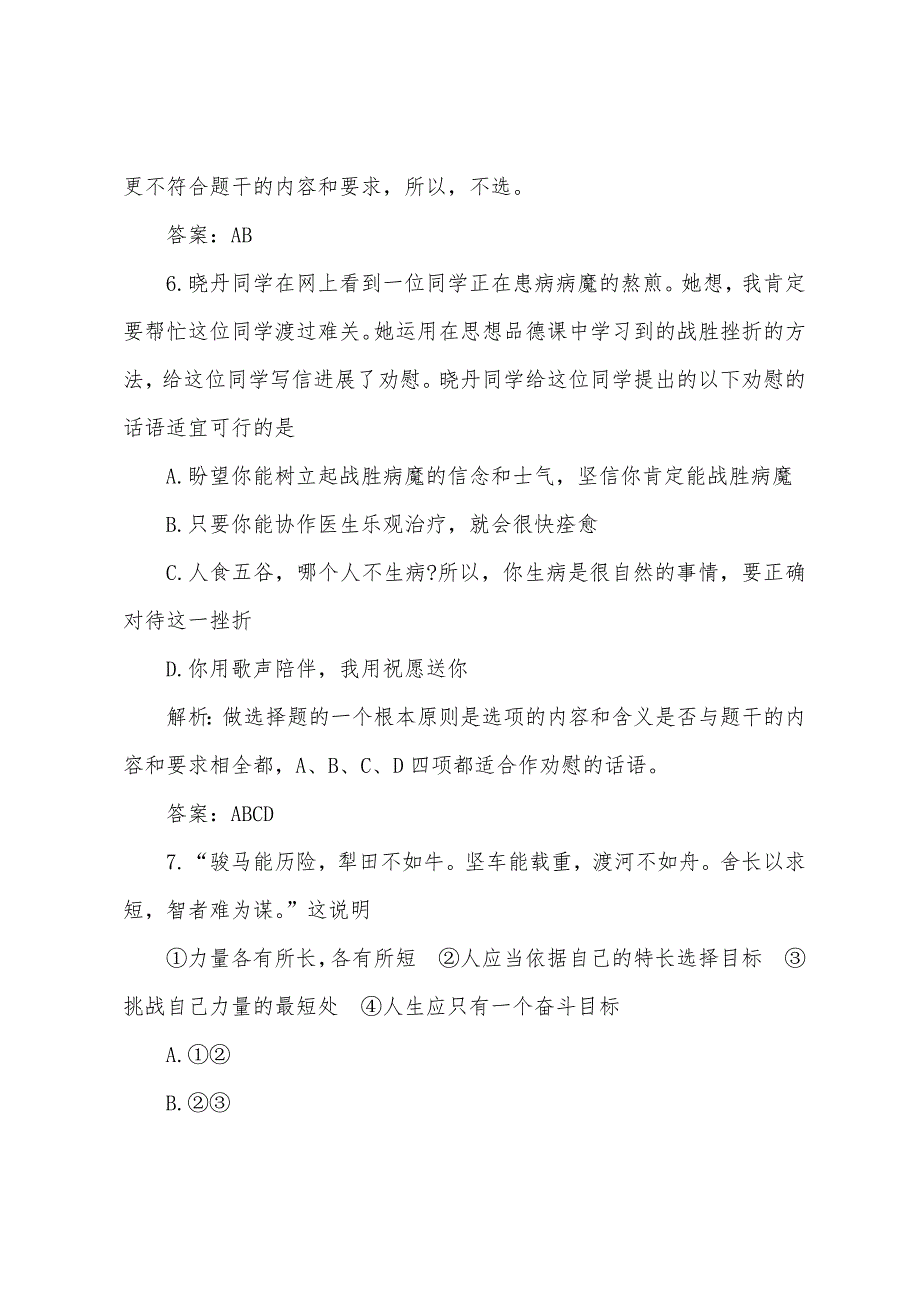 更不符合题干的内容和要求，所以，不选。
答案：AB
6.晓丹同学在网上看到一位同学正在患病病魔的熬煎。她想，我肯定
要帮忙这位同学渡过难关。她运用在思想品德课中学习到的战胜挫折的方
法，给这位同学写信进展了劝慰。晓丹同学给这位同学提出的以下劝慰的
话语适宜可行的是
A.盼望你能树立起战胜病魔的信念和士气，坚信你肯定能战胜病魔
B.只要你能协作医生乐观治疗，就会很快痊愈
C.人食五谷，哪个人不生病?所以，你生病是很自然的事情，要正确
对待这一挫折
D.你用歌声陪伴，我用祝愿送你
解析：做选择题的一个根本原则是选项的内容和含义是否与题干的内
容和要求相全都，A、B、C、D四项都适合作劝慰的话语。
答案：ABCD
7.“骏马能历险，犁田不如牛。坚车能载重，渡河不如舟。舍长以求
短，智者难为谋。”这说明
①力量各有所长，各有所短　②人应当依据自己的特长选择目标　③
挑战自己力量的最短处　④人生应只有一个奋斗目标
A.①②
B.②③